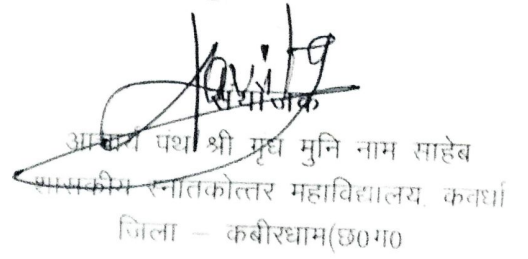 Kavita
संयोजक
आचार्य पंथ श्री गृध मुनि नाम साहेब
शासकीय स्नातकोत्तर महाविद्यालय, कवर्धा
जिला – कबीरधाम(छ0ग0